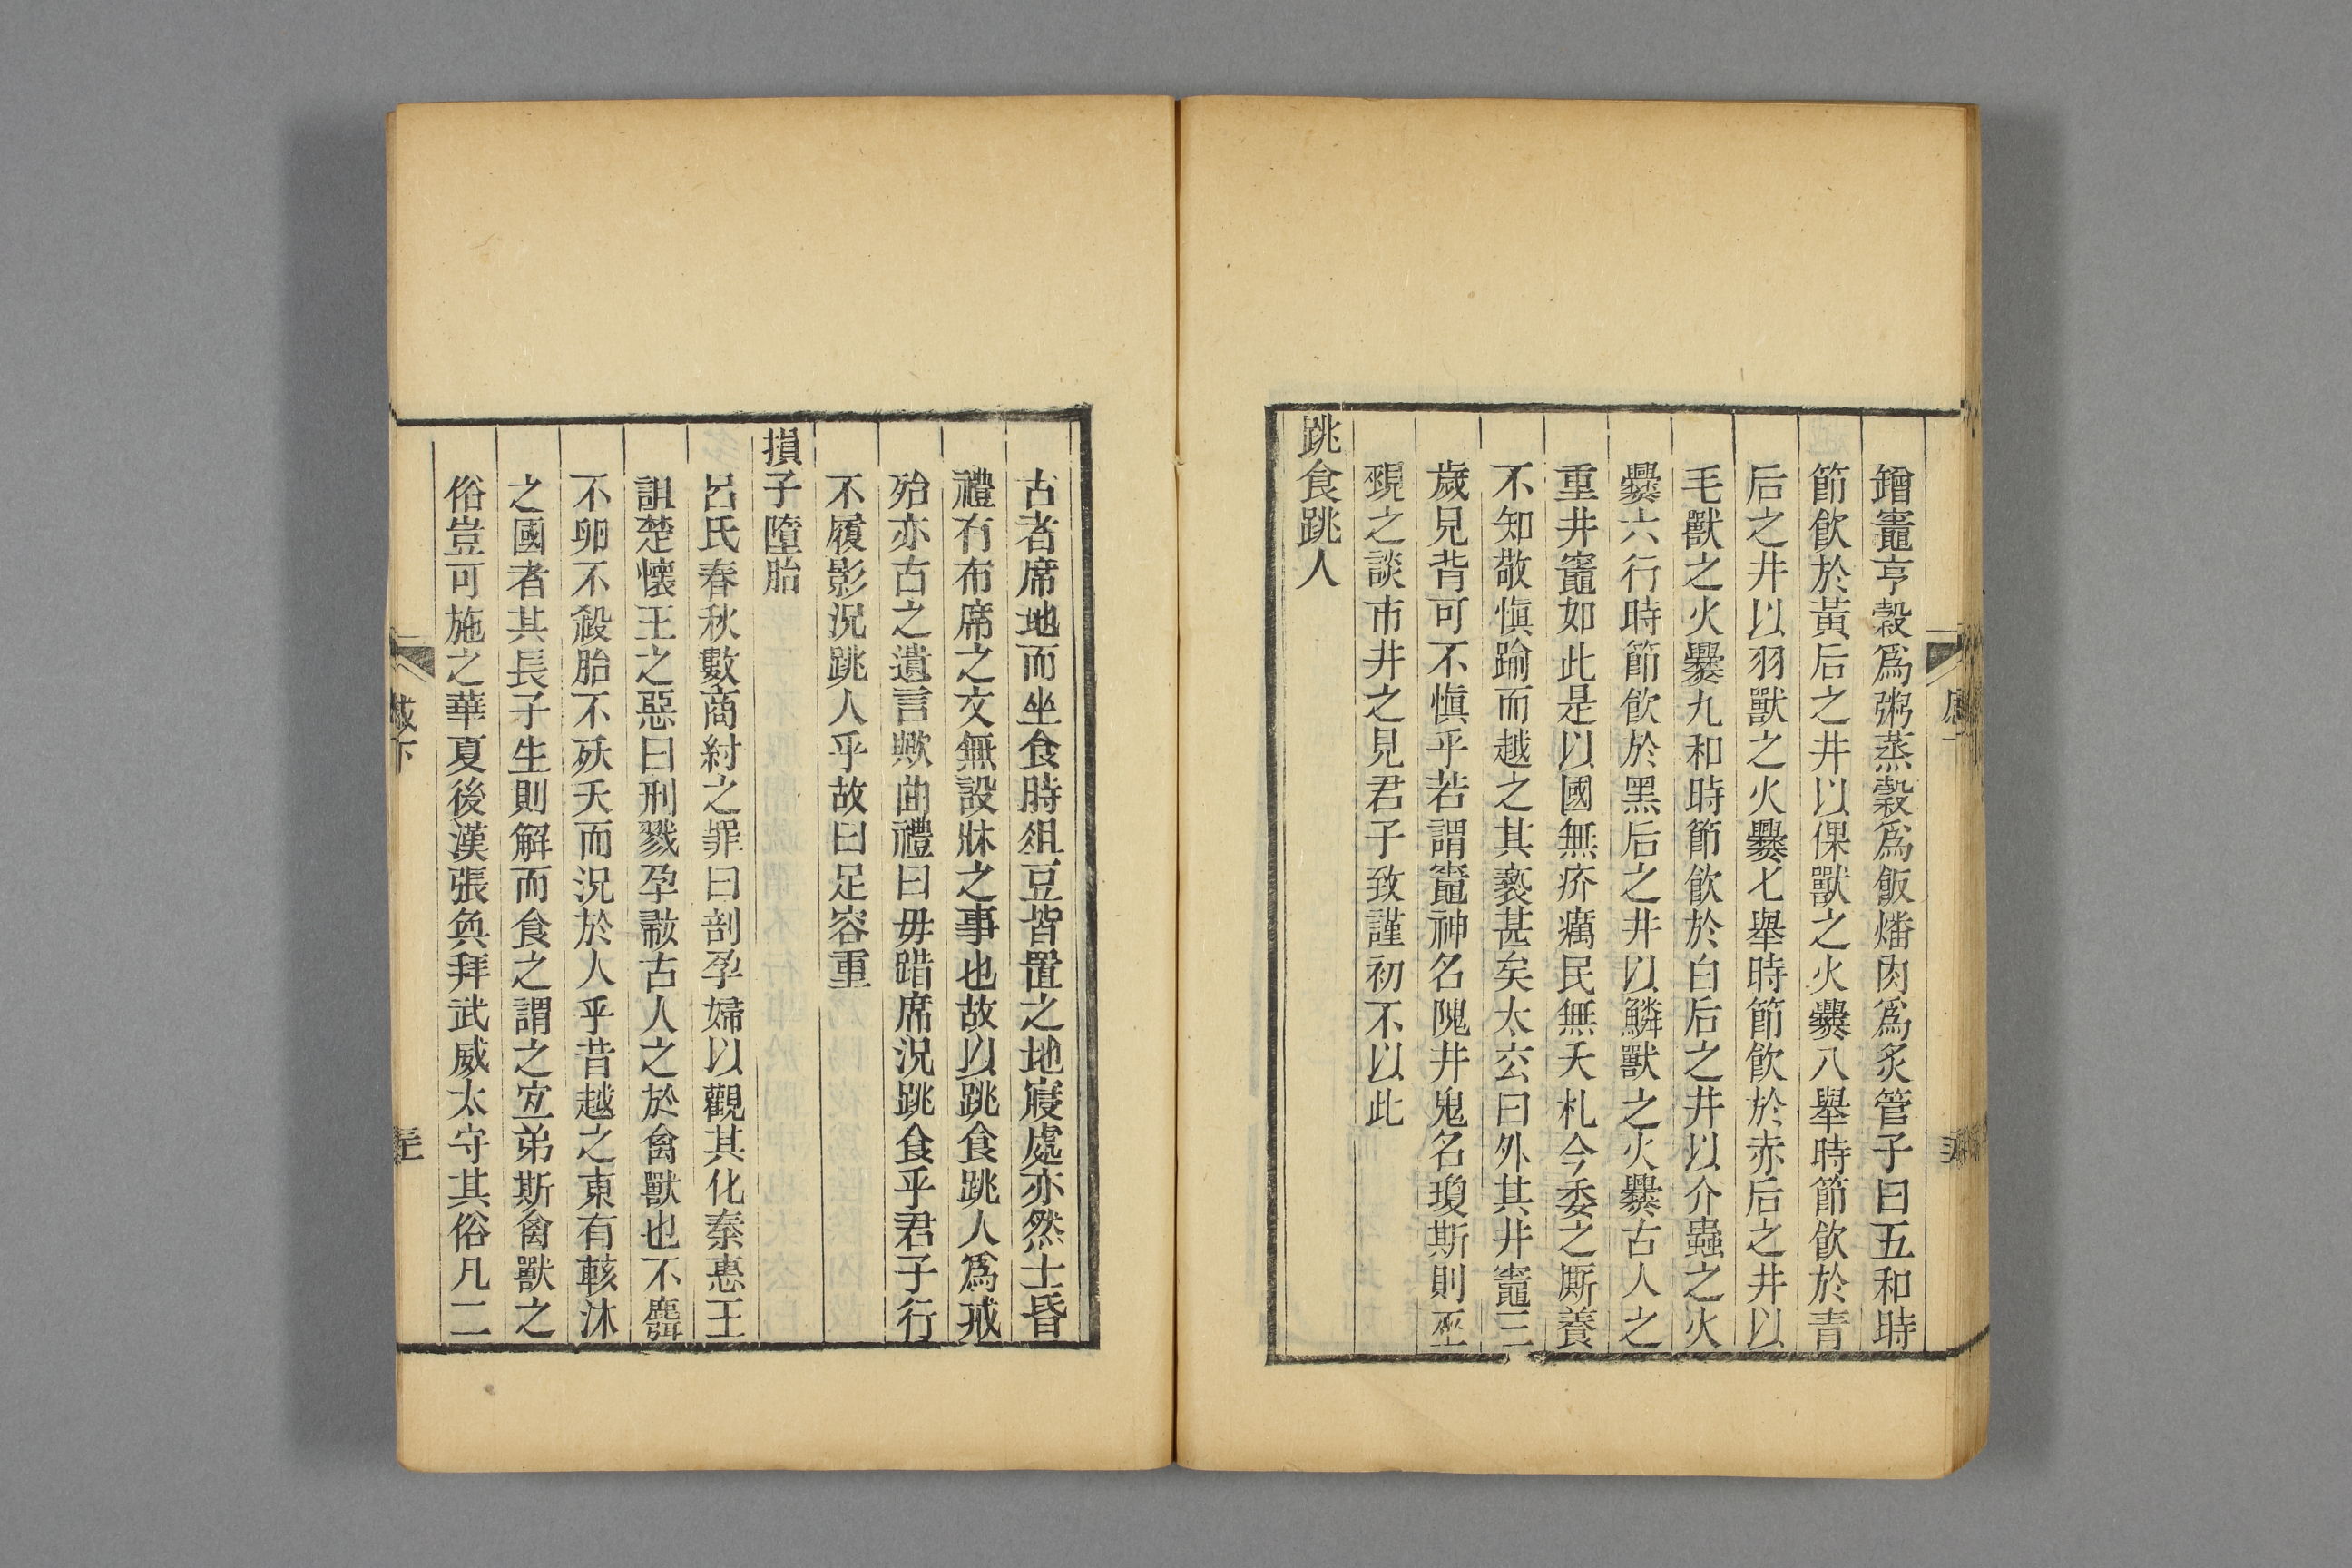 鏳竈亨穀爲粥蒸穀爲飯燔肉爲炙管子曰五和時
節飲於黃后之井以倮獸之火爨八舉時節飲於青
后之井以羽獸之火爨七舉時節飲於赤后之井以
毛獸之火爨九和時節飲於白后之井以介蟲之火
爨六行時節飲於黑后之井以鱗獸之火爨古人之
重井竈如此是以國無疥癘民無夭札今委之厮養
不知敬愼踰而越之其褻甚矣太玄曰外其井竈三
歲見背可不愼乎若謂竈神名隗井鬼名瓊斯則巫
覡之談市井之見君子致謹初不以此
跳食跳人
古者席地而坐食時俎豆皆置之地寢處亦然士昏
禮有布席之文無設牀之事也故以跳食跳人爲戒
殆亦古之遺言歟曲禮曰毋踖席況跳食乎君子行
不履影況跳人乎故曰足容重
損子墮胎
呂氏春秋數商紂之罪曰剖孕婦以觀其化秦惠王
詛楚懷王之惡曰刑戮孕㜸古人之於禽獸也不麛
不卵不殺胎不殀夭而況於人乎昔越之東有輆沐
之國者其長子生則解而食之謂之宜弟斯禽獸之
俗豈可施之華夏後漢張奐拜武威太守其俗凡二